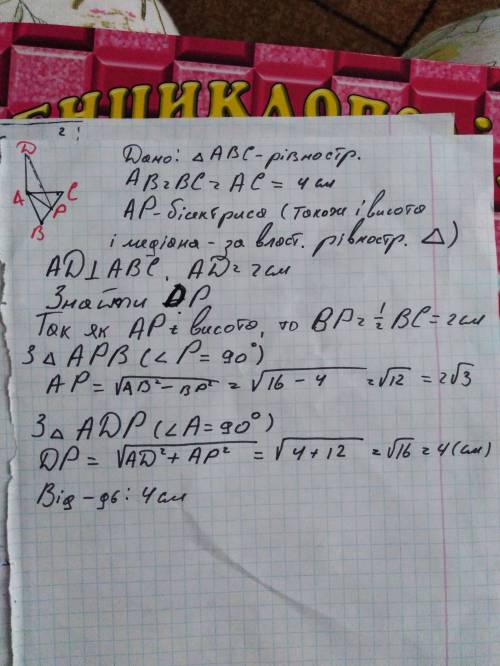 ЕНЦИКЛОПЕ
D
A
C
P
B
Дано: △ABC-рівностр.
AB=BC=AC=4см
AP-бісектриса (також і висота
і медіана - за власт. рівностр. △)
AD⊥ABC, AD=2см
Знайти DP
Так як AP= висота, то BP=1/2 BC=2см
З △ APB (∠P=90°)
AP=√AB²-BP²=√16-4=√12=2√3
З △ ADP (∠A=90°)
DP=√AD²+AP²=√4+12=√16=4(см)
Від-дь: 4см